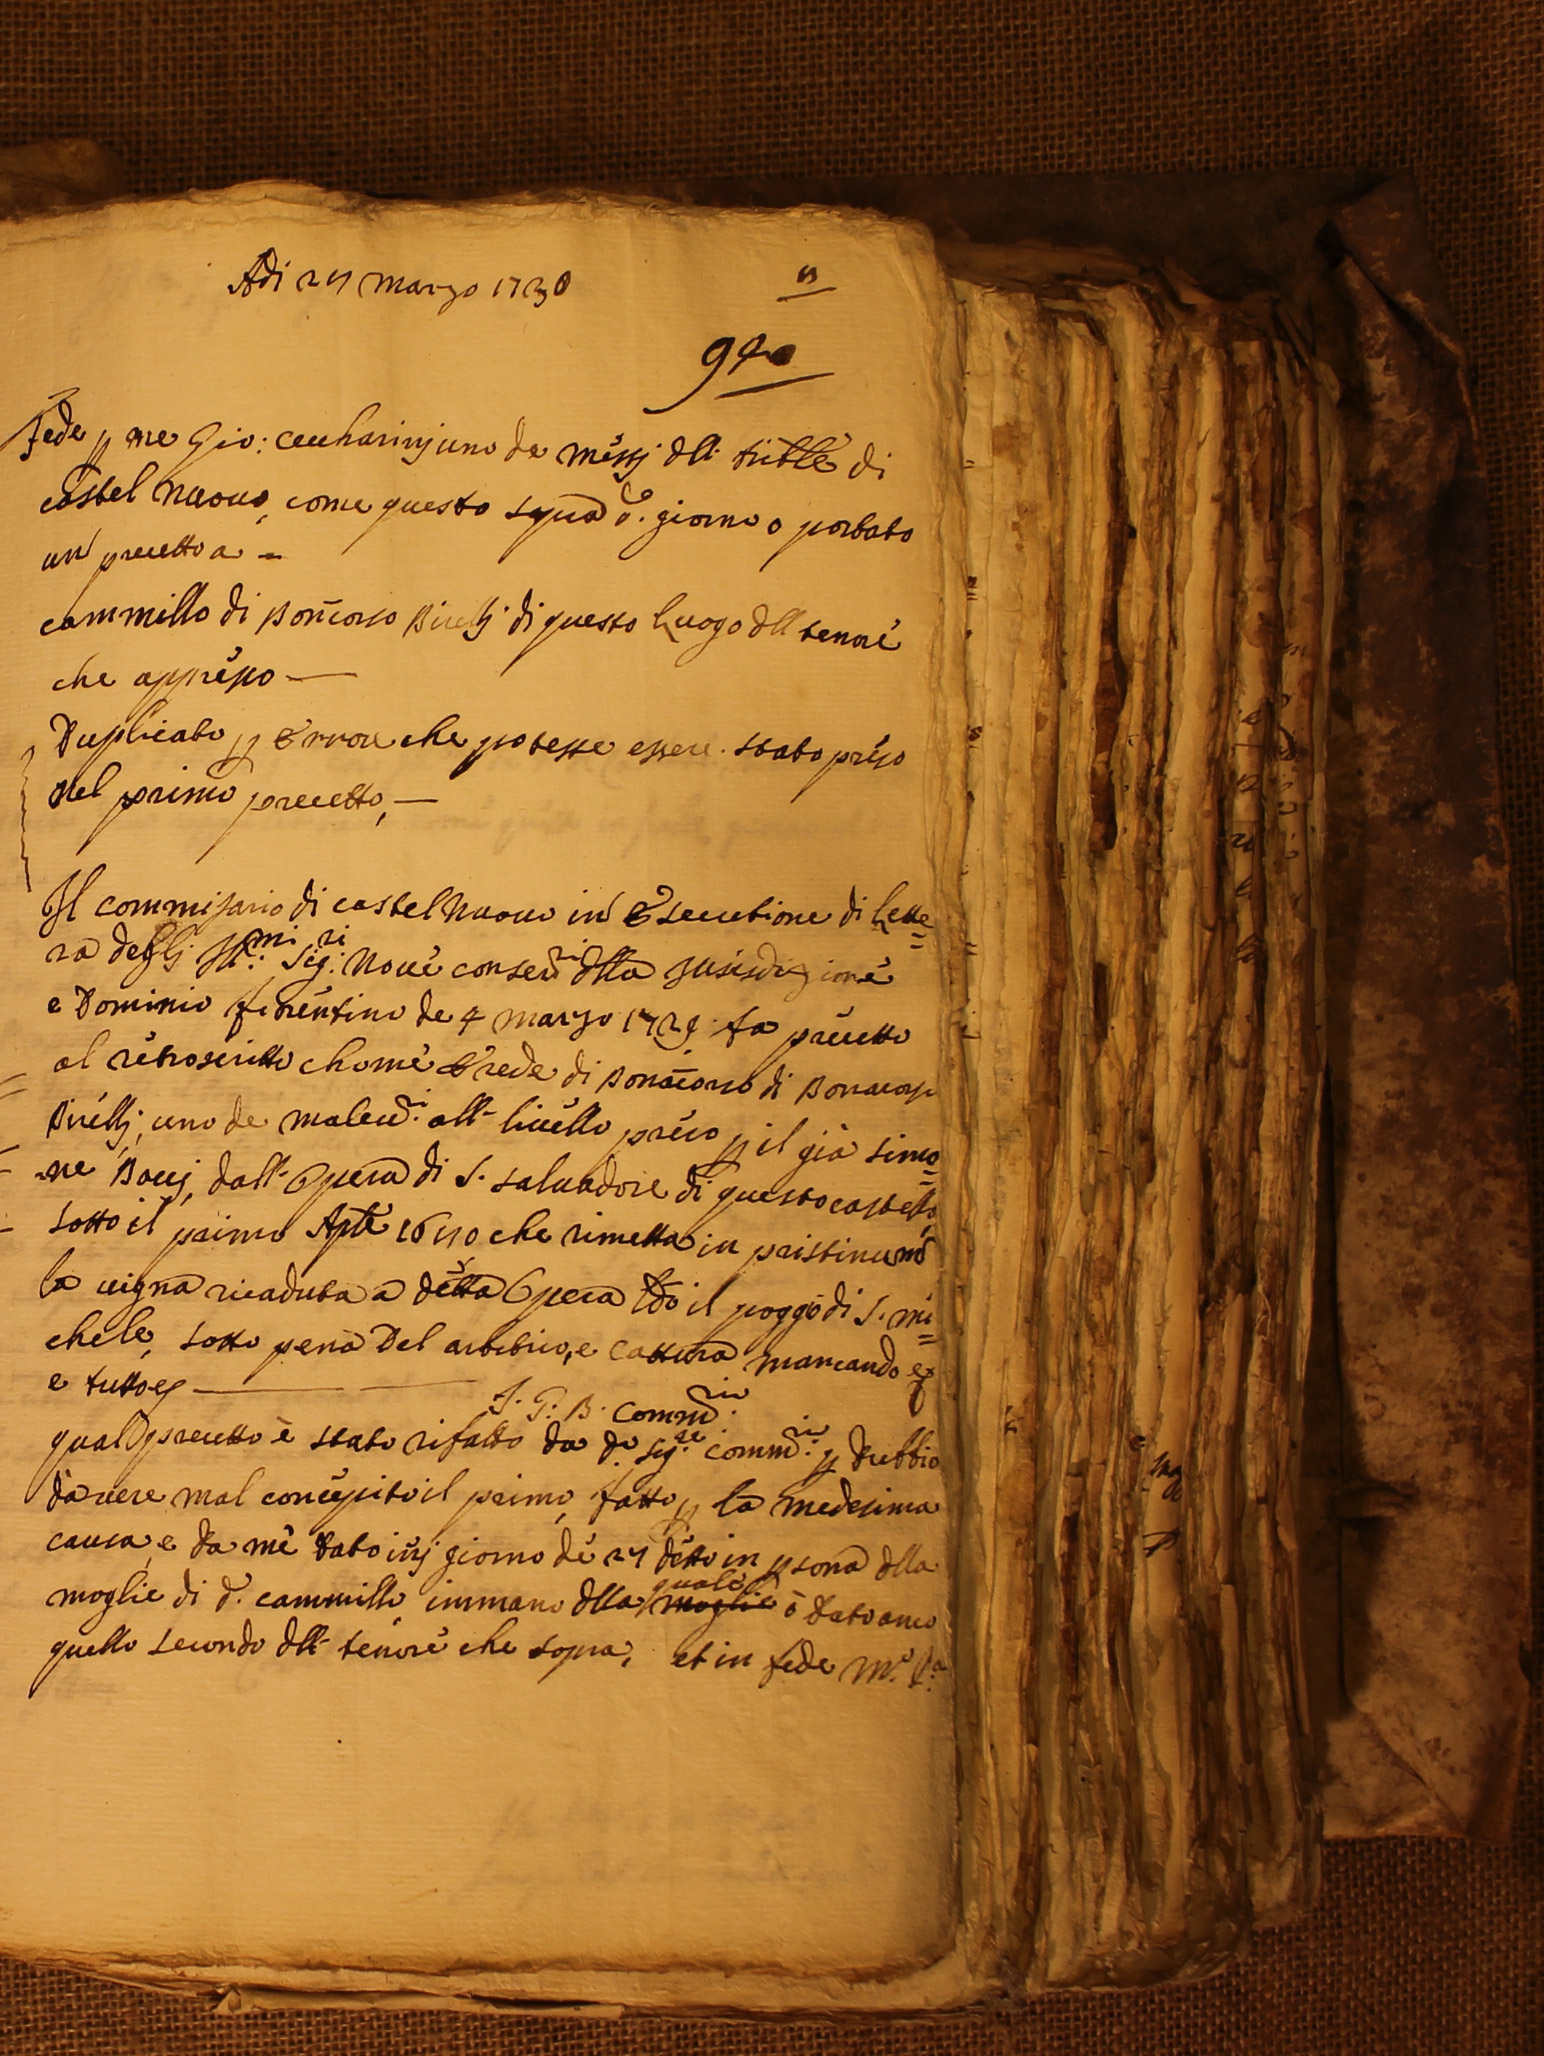 Adi 27 Marzo 1730
Fede p me Gio: Ceccharinj uno de Messj dll Trible di
Castel Nuouo, come questo sopra do. giorno o portato
un precetto a =
Cammillo di Boncorso Birellj di questo Luogo dll tenore
che appresso —
Duplicato p Errore che potesse essere stato preso
nel primo precetto, —
Il Commisario di Castel Nuouo in Esecutione di Lette=
ra deglj Illmi: Sigri: Noue Conseri dlla Jurisdizione
e Dominio fiorentino de 4 Marzo 1729 fa precetto
al retroscritto chome Erede di Bonacorso di Bonacorso
Birellj, uno de maleudi: all- liuello preso p il già Simo=
ne Baccj, dall- Opera di S. Saluadore di questo Castello
sotto il primo Aple 1650 che rimetta in pristinum
la uigna ricaduta a detta Opera Ldo il poggo di S. Mi=
chele, sotto pena Del arbitrio, e Cattura mancando
e tutto
J. G: B. Commrio:
qual precetto è stato rifatto da do Sigre: Commrio: p Dubbio
dauere mal concepito il primo, fatto p la medesima
causa, e Da me Dato inj giorno de 27 detto in psona dlla
moglie di d. Cammillo immano dlla quale ò Dato anco
quello secondo dll- tenore che sopra, et in fede